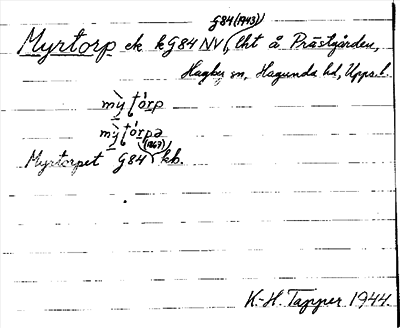 G84 (1943)
Myrtorp ek kG84 NV (lht å Prästgården,
Hagby sn, Hagunda hd, Upps. l.
mỳṭórp
mỳṭórpə
(1867)
Myrtorpet G84 kb.
K-H. Tapper 1944.